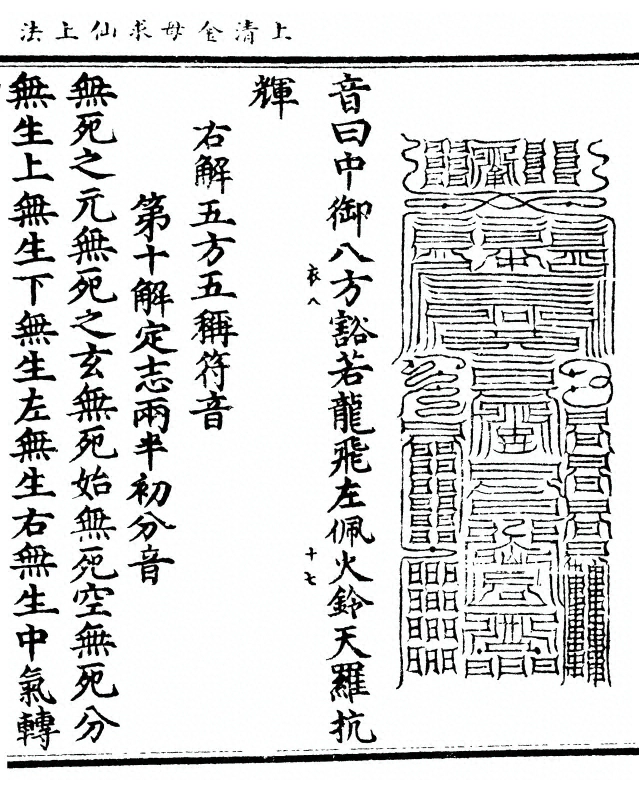 上清金母求仙上法
音曰中御八方豁若龍飛左佩火鈴天羅抗
衣八
十七
輝
右解五方五稱符音
第十解定志兩半初分音
無死之元無死之玄無死始無死空無死分
無生上無生下無生左無生右無生中氣轉